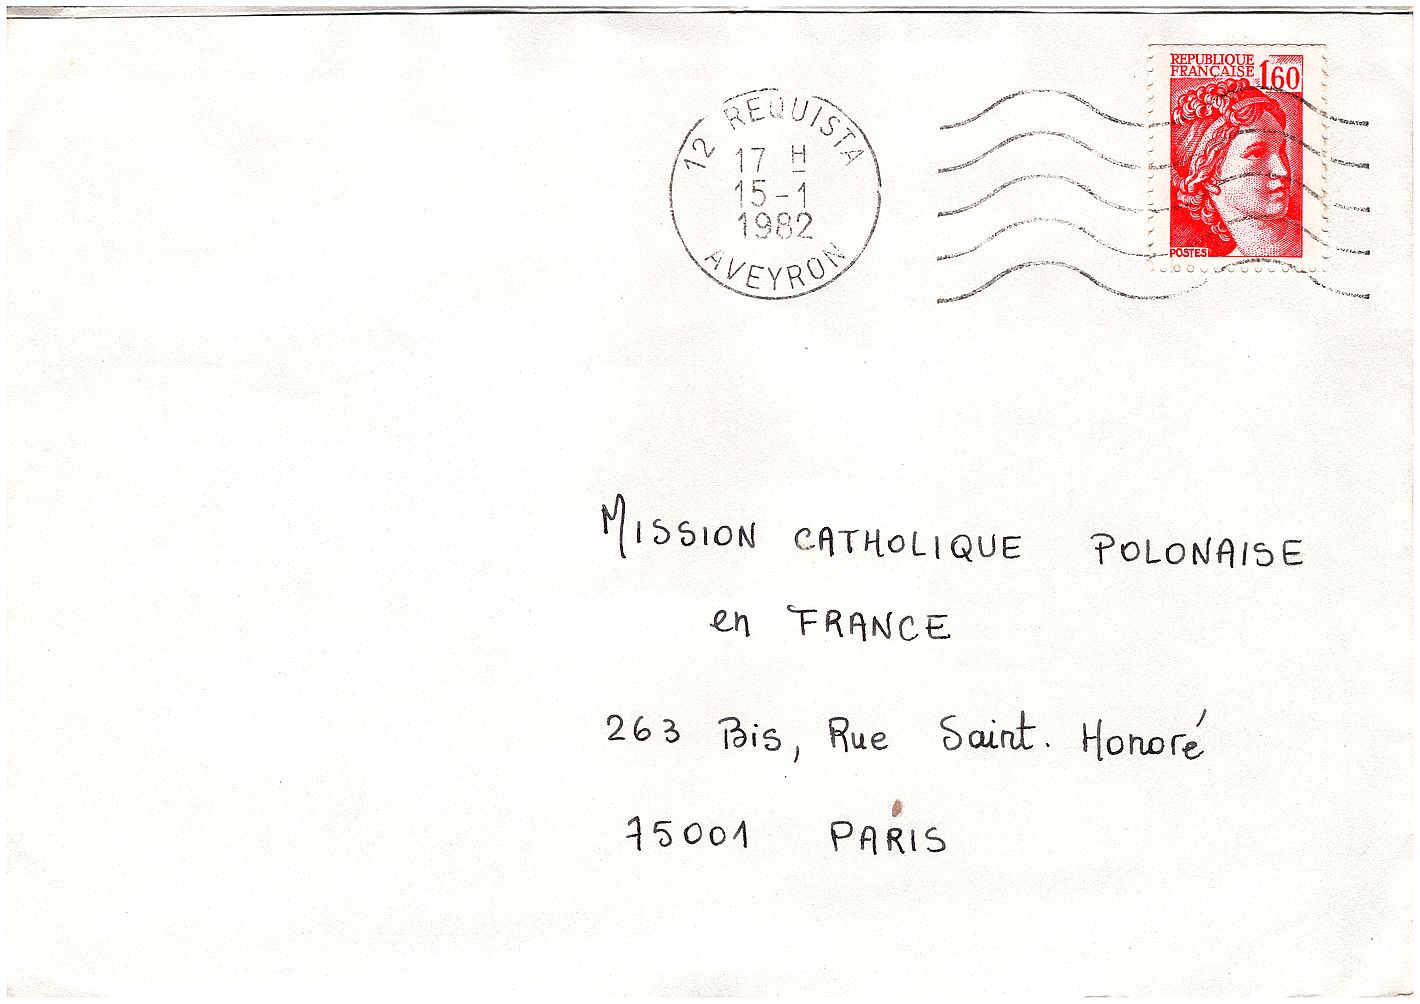 12 REQUISTA
17 H
15-1
1982
AVEYRON
REPUBLIQUE
FRANÇAISE
1,60
POSTES
MISSION CATHOLIQUE POLONAISE
en FRANCE
263 Bis, Rue Saint. Honoré
75001 PARIS